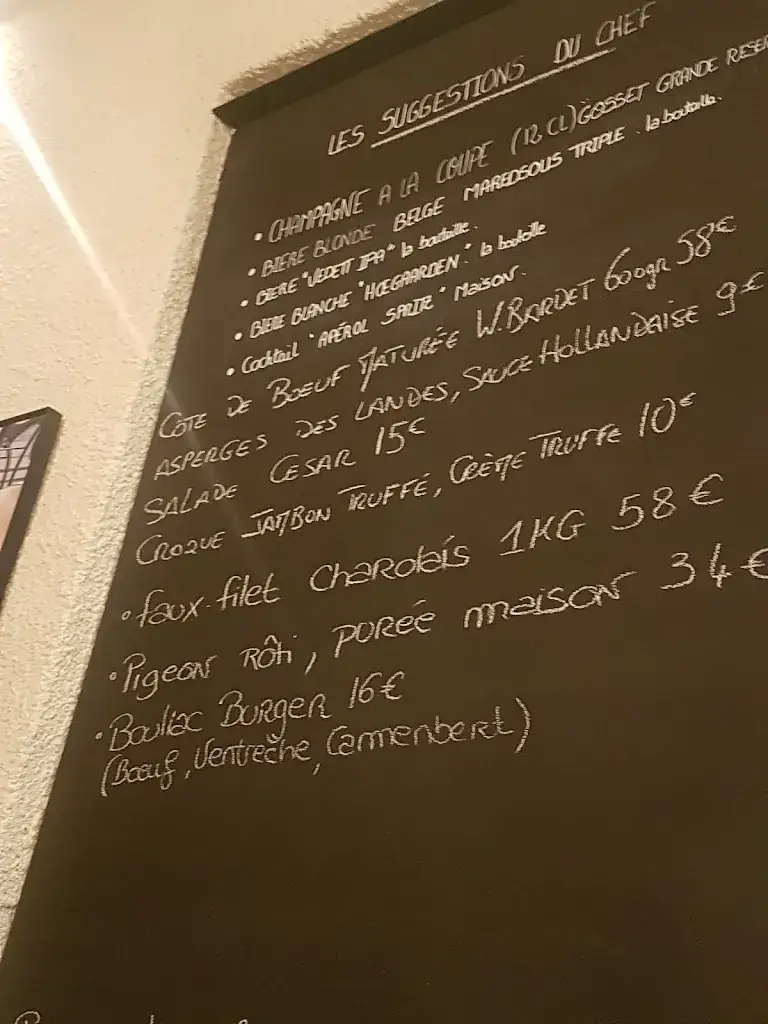 LES SUGGESTIONS DU CHEF
• CHAMPAGNE A LA COUPE (12 CL) GOSSET GRANDE RESER
• BIERE BLONDE BELGE MAREDSOUS TRIPLE . la bouteille.
• BIERE "VEDETT IPA" la bouteille.
• BIERE BLANCHE "HOEGAARDEN." la bouteille
• Cocktail "APÉROL SPRITZ" MAISON.
CÔTE DE BOEUF MATURÉE W.BORDET 600gr 58€
ASPERGES DES LANDES, SAUCE HOLLANDAISE 9€
SALADE CESAR 15€
CROQUE JAMBON TRUFFÉ, CRÈME TRUFFE 10€
• faux-filet CHAROLAIS 1KG 58€
• Pigeon Rôti, purée maison 34€
• Bouliac Burger 16€
(Bœuf, Ventrèche, Camembert)